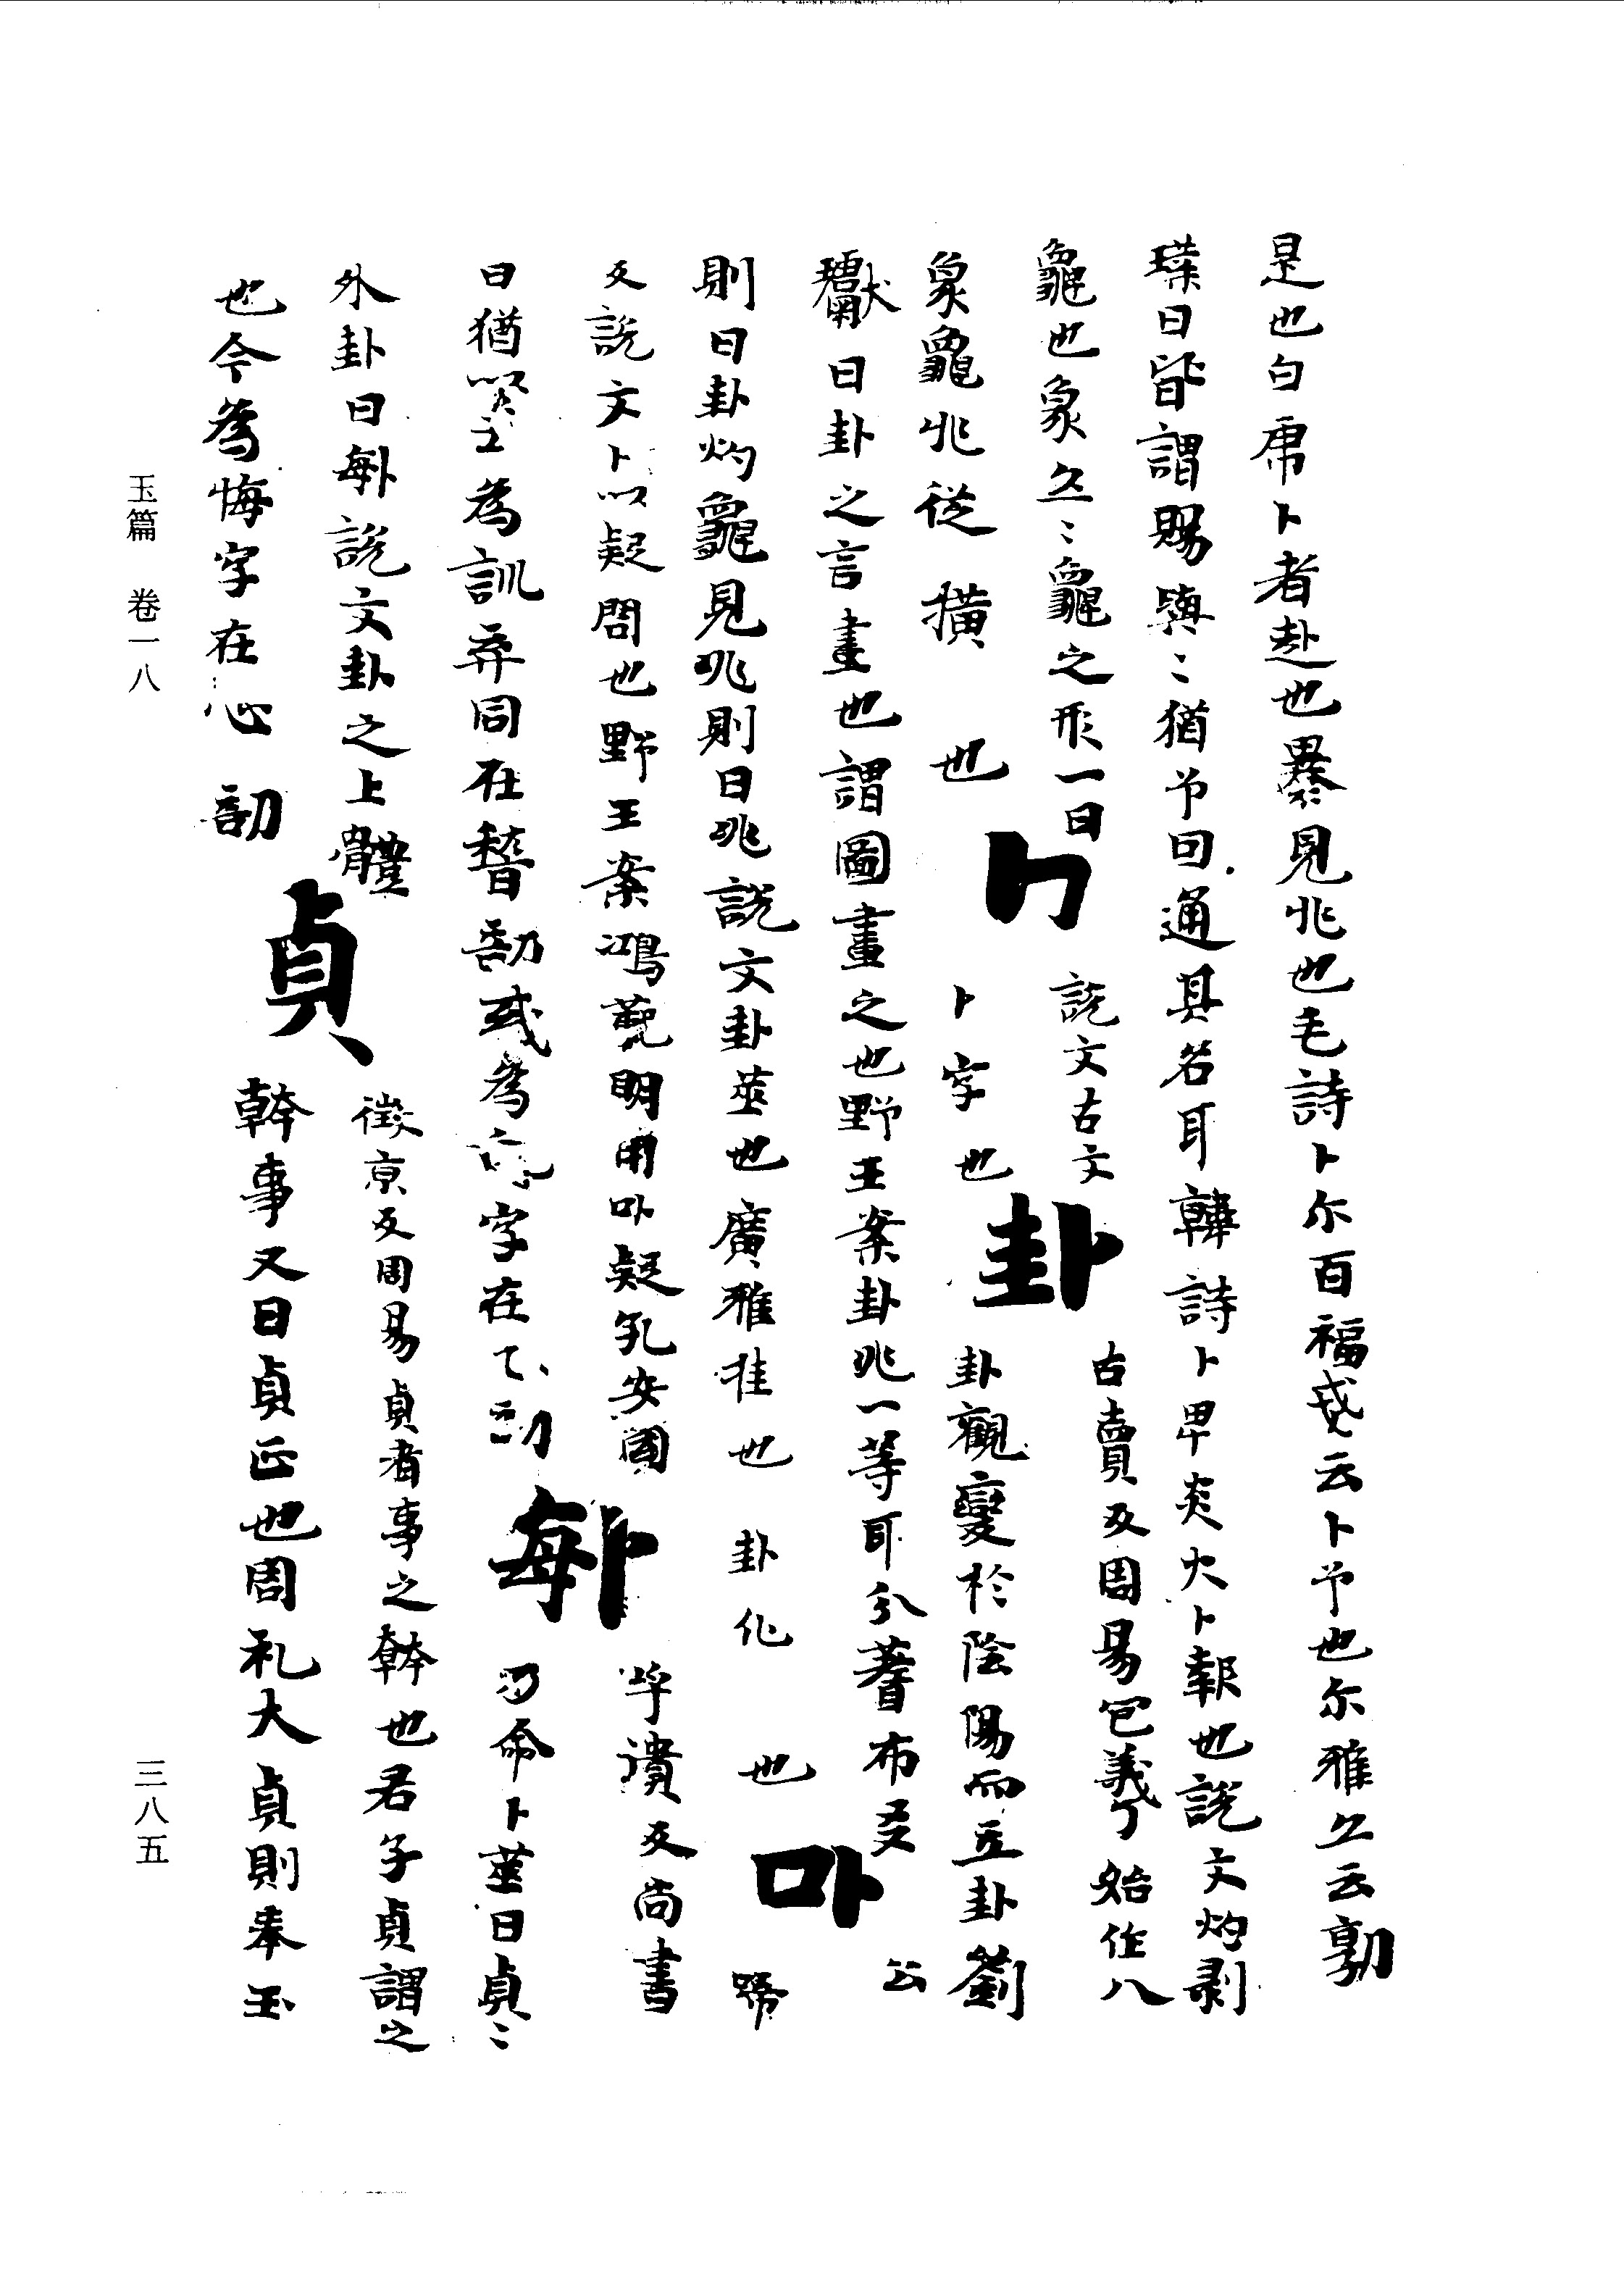 是也白席卜者赴也㬥見兆也毛詩卜尓百福戔云卜予也尓雅亦云郭
璞曰皆謂賜與〻猶予曰通具名耳韓詩卜畀炎火卜報也說文灼剥
龜也象灸〻龜之形一曰
象龜兆從橫也
說文古文
卜字也
卦
古賣反周易包羲了始作八
卦觀變於陰陽而立卦劉
瓛曰卦之言畫也謂圖畫之也野王案卦兆一等耳分蓍布爻
則曰卦灼龜見兆則曰兆說文卦莁也廣雅挂也卦化也
卟
公
號
反說文卜以疑問也野王案鴻範明用卟疑孔安國
曰猶為訓弃同在稽部或為字在部
𠧩
呼潰反尚書
乃命卜莁曰貞〻
外卦曰𠧩說文卦之上體
也今為悔字在心部
貞
徵京反周易貞者事之幹也君子貞謂之
幹事又曰貞正也周礼大貞則奉玉
玉篇 卷一八
三八五